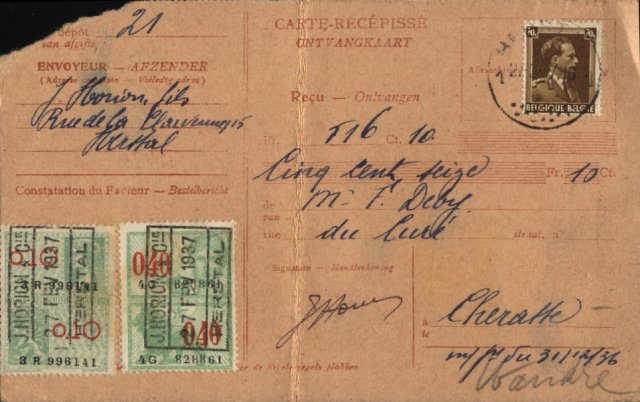 dépôt 21
van afgifte
ENVOYEUR — AFZENDER
(Adresse complète — Volledig adres)
J. Horion, fils
Rue de la 15
Herstal
Constatation du Facteur — Bestelbericht
CARTE-RÉCÉPISSÉ
ONTVANGKAART
70c 70c
BELGIQUE-BELGIË
Reçu — Ontvangen
Fr. 516 Ct. 10
Cinq cent seize Fr. 10 Ct.
de Mr F. Devy
van
rue du Curé straat, n°
Signature — Handteekening
à Cheratte
te
m/ du 31/12/36
Wandre
0,10
3 R 996141
0,10
3 R 996141
J. HORION & Cie
17 FEV 1937
HERSTAL
0,40
4 G 828861
0,40
4 G 828861
J. HORION & Cie
17 FEV 1937
HERSTAL
de fiscale zegels plakken